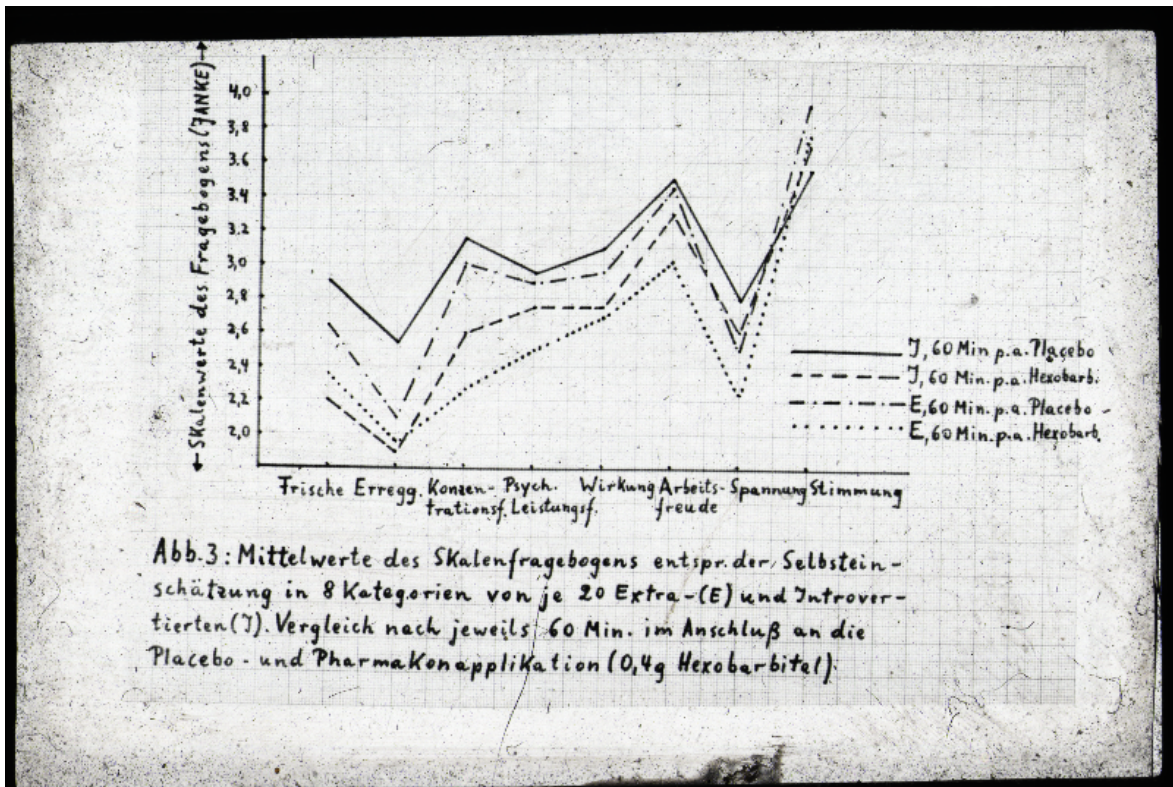 ←Skalenwerte des Fragebogens (JANKE)→
4,0
3,8
3,6
3,4
3,2
3,0
2,8
2,6
2,4
2,2
2,0
Frische Erregg. Konzen- Psych. Wirkung Arbeits- Spannung Stimmung
trationsf. Leistungsf. freude
J, 60 Min p.a. Placebo
J, 60 Min. p.a. Hexobarb.
E, 60 Min. p.a. Placebo
E, 60 Min. p.a. Hexobarb.
Abb.3: Mittelwerte des Skalenfragebogens entspr. der Selbstein-
schätzung in 8 Kategorien von je 20 Extra-(E) und Introver-
tierten (J). Vergleich nach jeweils 60 Min. im Anschluß an die
Placebo- und Pharmakonapplikation (0,4g Hexobarbital).